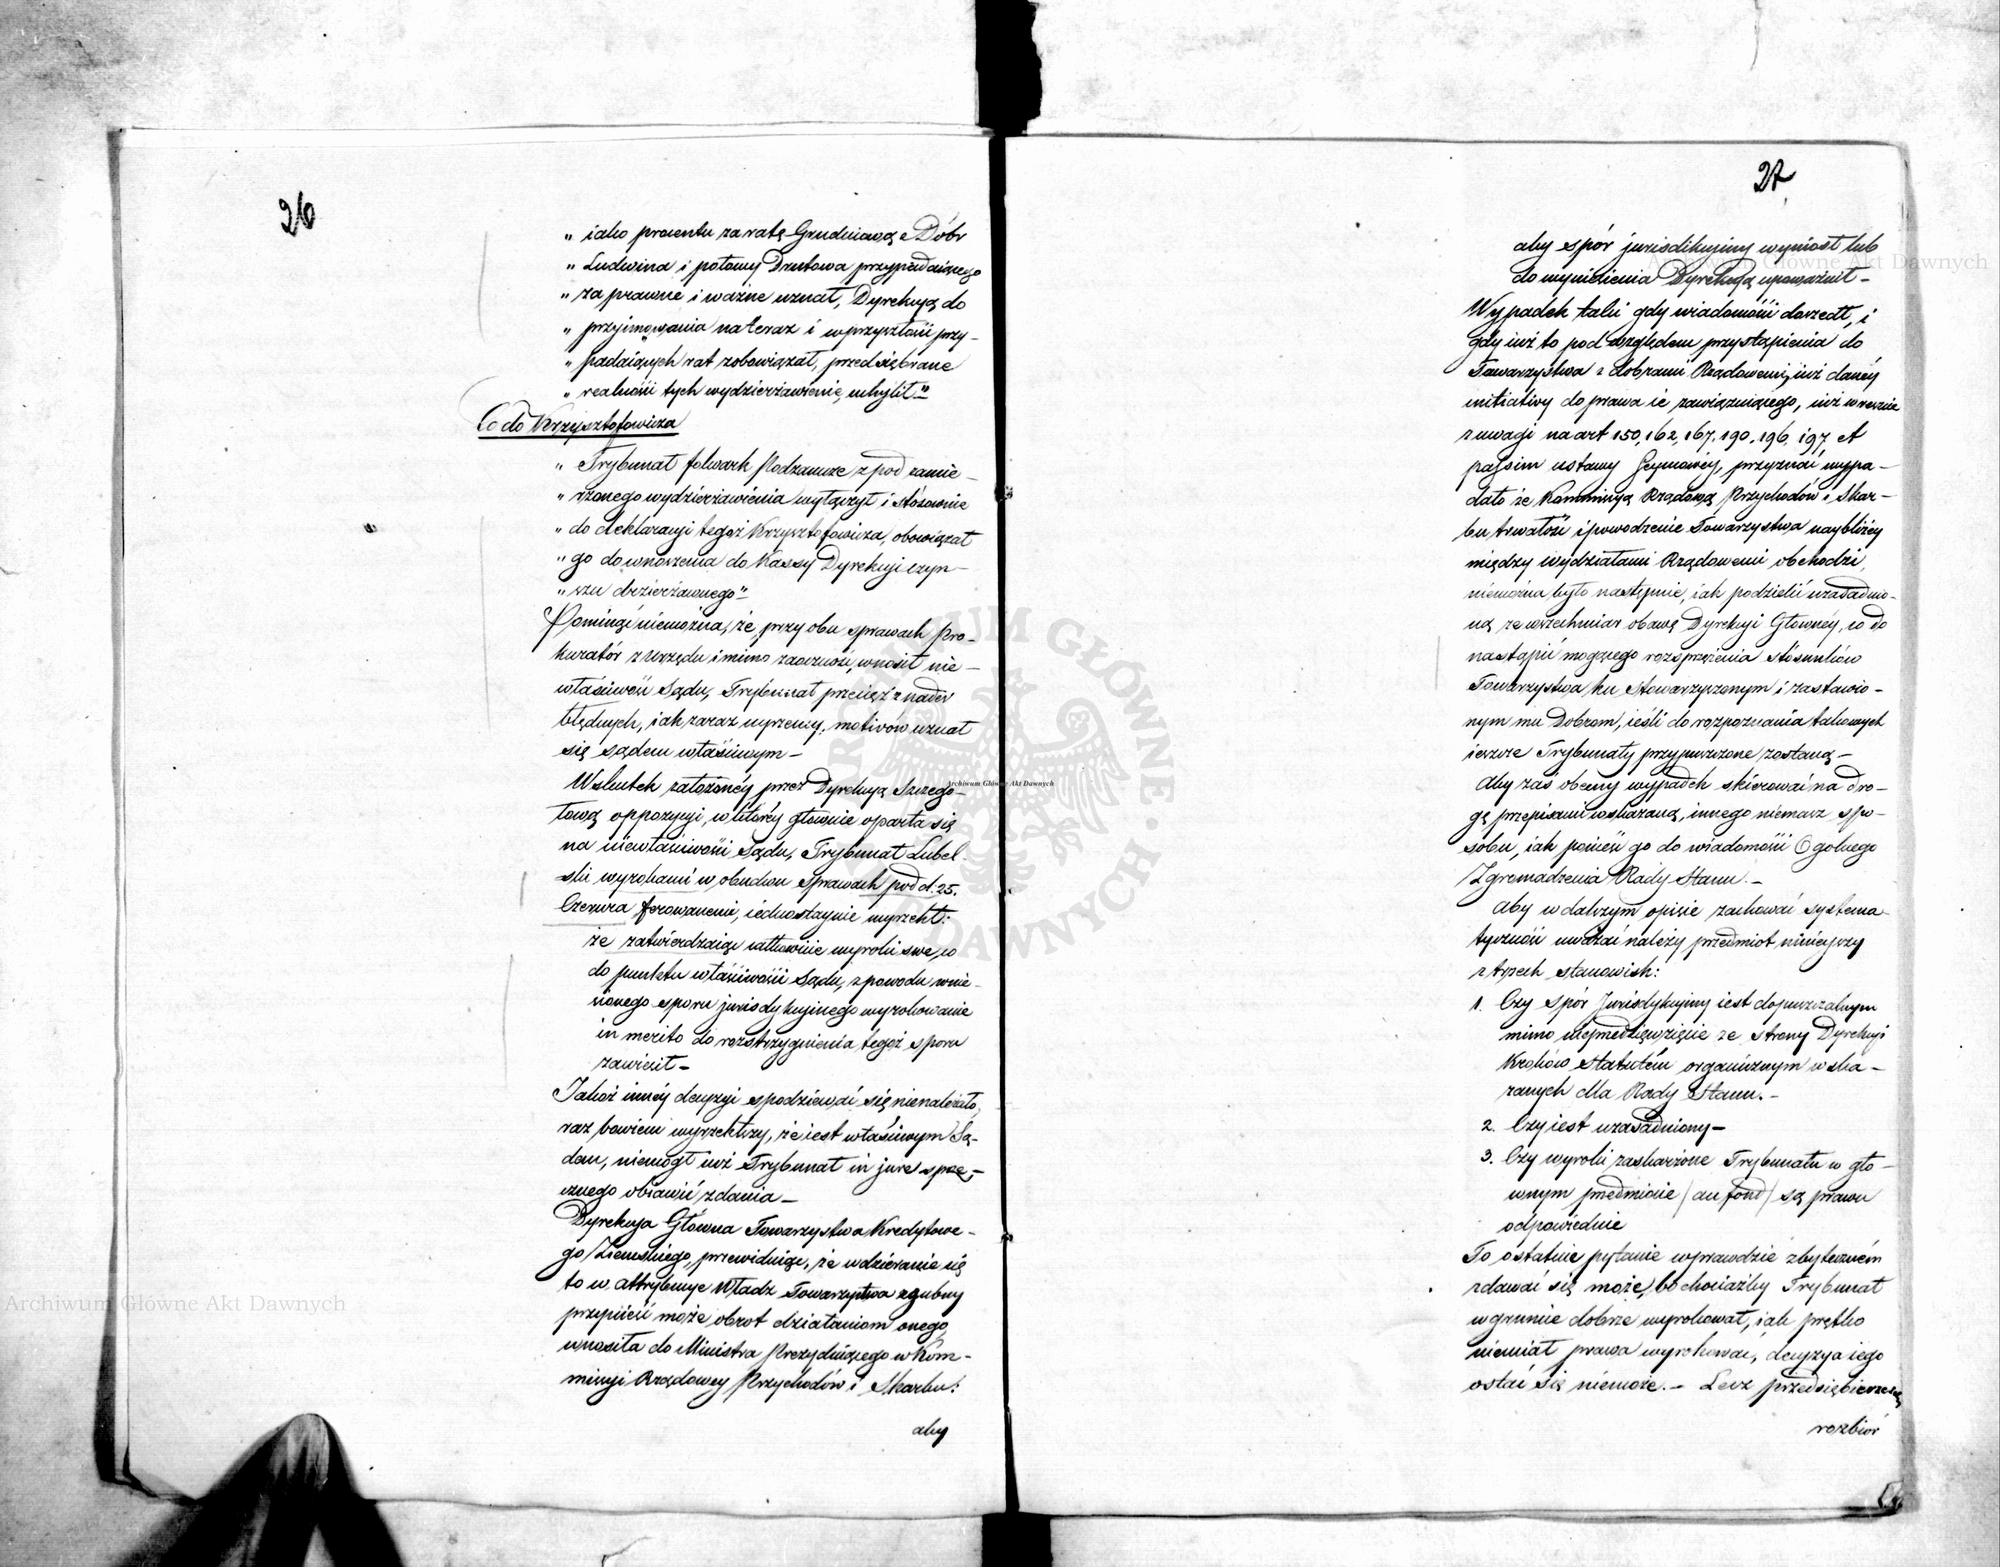 26
„ iako procentu za ratę Grudniową z Dóbr
„ Ludwina i połowy Drutowa przypadaiącego
„ za prawne i ważne uznał, Dyrekcyą do
„ przyimowania na teraz i w przyszłości przy-
„ padaiących rat zobowiązał, przedsiębrane
„ realności tych wydzierżawienie uchylił"
Co do Krzysztofowicza
„ Trybunał folwark Podzamcze z pod zamie-
„ rzonego wydzierżawienia wyłączył i stósownie
„ do deklaracyi tegoż Krzysztofowicza, obowiązał
„ go do wnoszenia do Kassy Dyrekcyi czyn-
„ szu dzierżawnego"
Pominąć niemożna, że przy obu sprawach Pro-
kurator z Urzędu i mimo zaoczność, wnosił nie-
właściwość Sądu, Trybunał przecięż z nader
błędnych, iak zaraz uyrzemy, motivów uznał
się sądem właściwym –
Wskutek założonéy przez Dyrekcyą Szczego-
łową oppozycyi, w któréy głównie oparła się
na niewłaściwości Sądu, Trybunał Lubel-
ski wyrokami w obudwu sprawach pod d. 25.
Czerwca ferowanemi, iednostaynie wyrzekł:
że zatwierdzaiąc całkowicie wyroki swe, co
do punktu właściwości Sądu, z powodu wnie-
sionego sporu jurisdykcyinego wyrokowanie
in merito do rozstrzygnienia tégoż sporu
zawiesił –
Jakoż innéy decyzyi spodziewać się nienależało,
raz bowiem wyrzekłszy, że iest właściwym Są-
dem, niemógł iuż Trybunał in jure sprze-
cznego obiawić zdania –
Dyrekcya Główna Towarzystwa Kredytowe-
go Ziemskiego, przewiduiąc, że wdzieranie się
to w attrybucye Władz Towarzystwa zgubny
przynieść może obrot działaniom onego
wnosiła do Ministra Prezyduiącego w Kom-
missyi Rządowey Przychodów i Skarbu:
aby
27
aby spór jurisdikcyiny wyniosł lub
do wyniesienia Dyrekcyą upoważnił –
Wypadek taki gdy wiadomości doszedł, i
gdy iuż to pod względem przystąpienia do
Towarzystwa z dobrami Rządowemi, iuż danéy
initiativy do prawa ie zawiązuiącego, iuż wreszcie
z uwagi na art 150, 162, 167, 190, 196, 197 et
passim ustawy Seymowéy, przyznać wypa-
dało że Kommissyą Rządową Przychodów i Skar-
bu trwałość i powodzenie Towarzystwa naybliżéy
między wydziałami Rządowemi obchodzi,
niemożna było następnie, iak podzielić uzasadnio-
ną ze wszechmiar obawę Dyrekcyi Głównéy, co do
nastąpić mogącego rozsprzężenia stósunków
Towarzystwa ku Stowarzyszonym i zastawio-
nym mu Dobrom, ieśli do rozpoznania takowych
ieszcze Trybunały przypuszczone zostaną –
Aby zaś obecny wypadek skierować na dro-
gę przepisami wskazaną, innego niemasz spo-
sobu, iak ponieść go do wiadomości Ogolnego
Zgromadzenia Rady Stanu. –
Aby w dalszym opisie zachować systema-
tyczność uważać należy przedmiot ninieyszy
z trzech stanowisk:
1. Czy spór Jurisdykcyiny iest dopuszczalnym
mimo nieprzedsięwzięcie ze strony Dyrekcyi
Kroków statutém organicznym wska-
zanych dla Rady Stanu. –
2. Czy iest uzasadniony –
3. Czy wyroki zaskarżone Trybunału w głó-
wnym przedmiocie (au fond) są prawu
odpowiednie
To ostatnie pytanie wprawdzie zbyteczném
zdawać się może, bo chociażby Trybunał
w gruncie dobrze wyrokował, iak prętko
niemiał prawa wyrokować, decyzya iego
ostać się niemoże. – Lecz przedsiębierzemy
rozbiór
Archiwum Główne Akt Dawnych
Archiwum Główne Akt Dawnych
Archiwum Główne Akt Dawnych
ARCHIWUM GŁÓWNE · AKT DAWNYCH ·